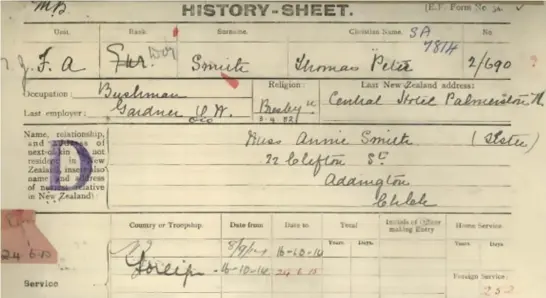 M.B. HISTORY-SHEET. [E.F. Form No.
Unit. Rank Surname. Christian Name. SA No
7814
N.Z.F.A Gnr. Smith Thomas Peter 2/690 ?
Occupation: Bushman Religion: Last New Zealand address:
Last employer: Gardner Central Hotel Palmerston N.
Name, relationship, and address of next-of-kin (if not resident in New Zealand insert also name and address of nearest relative in New Zealand)
D
Miss Annie Smith (Sister)
22 Clifton St
Addington
Chch
Country or Troopship. Date from Date to Total Initials of Officer making Entry Home Service
Years. Days. Years Days.
NZ 8/9/14 16-10-14
24 6.15 Foreign 16-10-14 24 6 15 Foreign Service:
Service